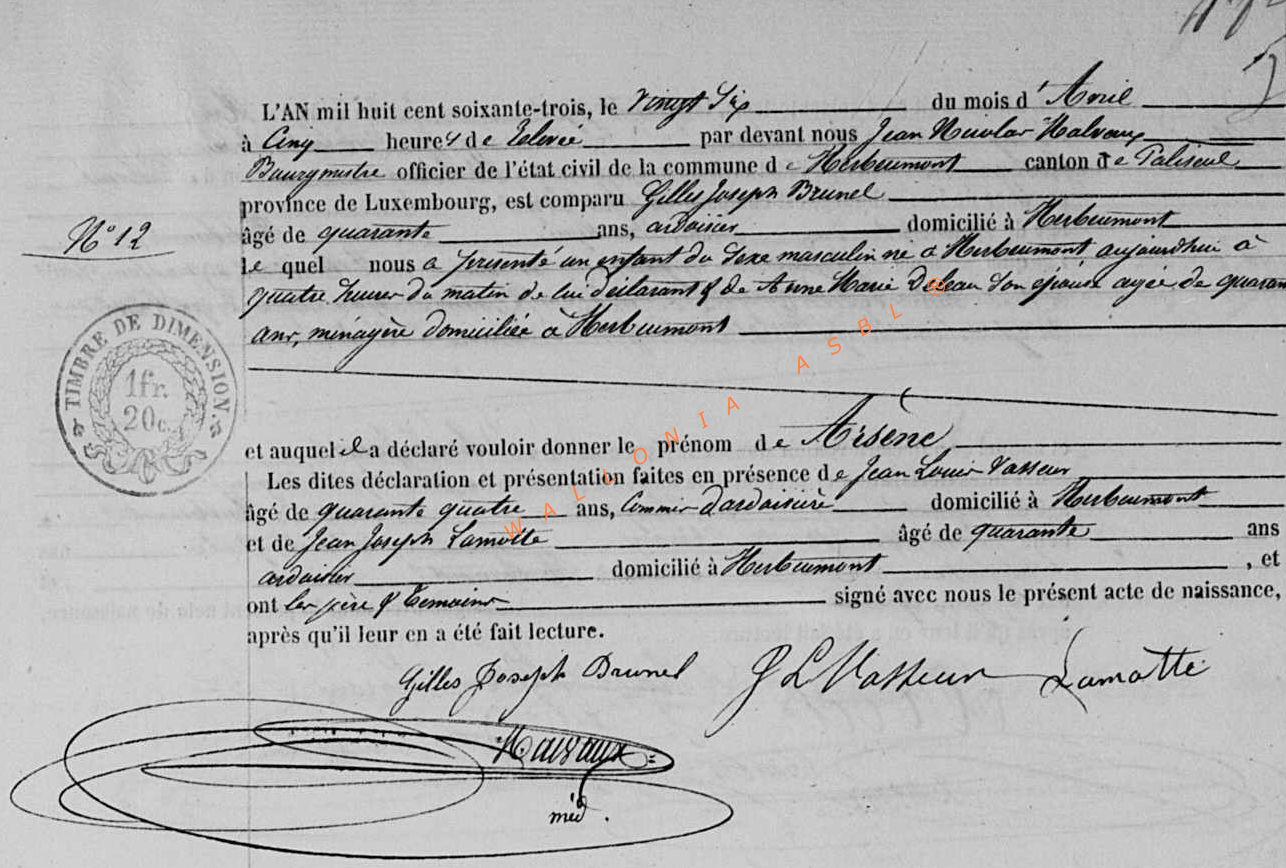 L'AN mil huit cent soixante-trois, le Vingt Six du mois d'Avril
à Cinq heures de Relevée par devant nous Jean Nicolas Halvaux
Bourgmestre officier de l'état civil de la commune de Herbeumont canton de Paliseul
province de Luxembourg, est comparu Gilles Joseph Brunel
N° 12
âgé de quarante ans, ardoisier domicilié à Herbeumont
le quel nous a présenté un enfant du sexe masculin né à Herbeumont aujourdhui à
quatre heures du matin de lui déclarant & de Anne Marie son épouse agée de quaran
ans, ménagère domiciliée à Herbeumont
TIMBRE DE DIMENSION.
1fr.
20c.
et auquel il a déclaré vouloir donner le prénom de Arsène
Les dites déclaration et présentation faites en présence de Jean Louis Vasseur
âgé de quarante quatre ans, Commis d'ardoisière domicilié à Herbeumont
et de Jean Joseph Lamotte âgé de quarante ans
ardoisier domicilié à Herbeumont , et
ont les père & témoins signé avec nous le présent acte de naissance,
après qu'il leur en a été fait lecture.
Gilles Joseph Brunel J L Vasseur Lamotte
WALLONIA ASBL ©